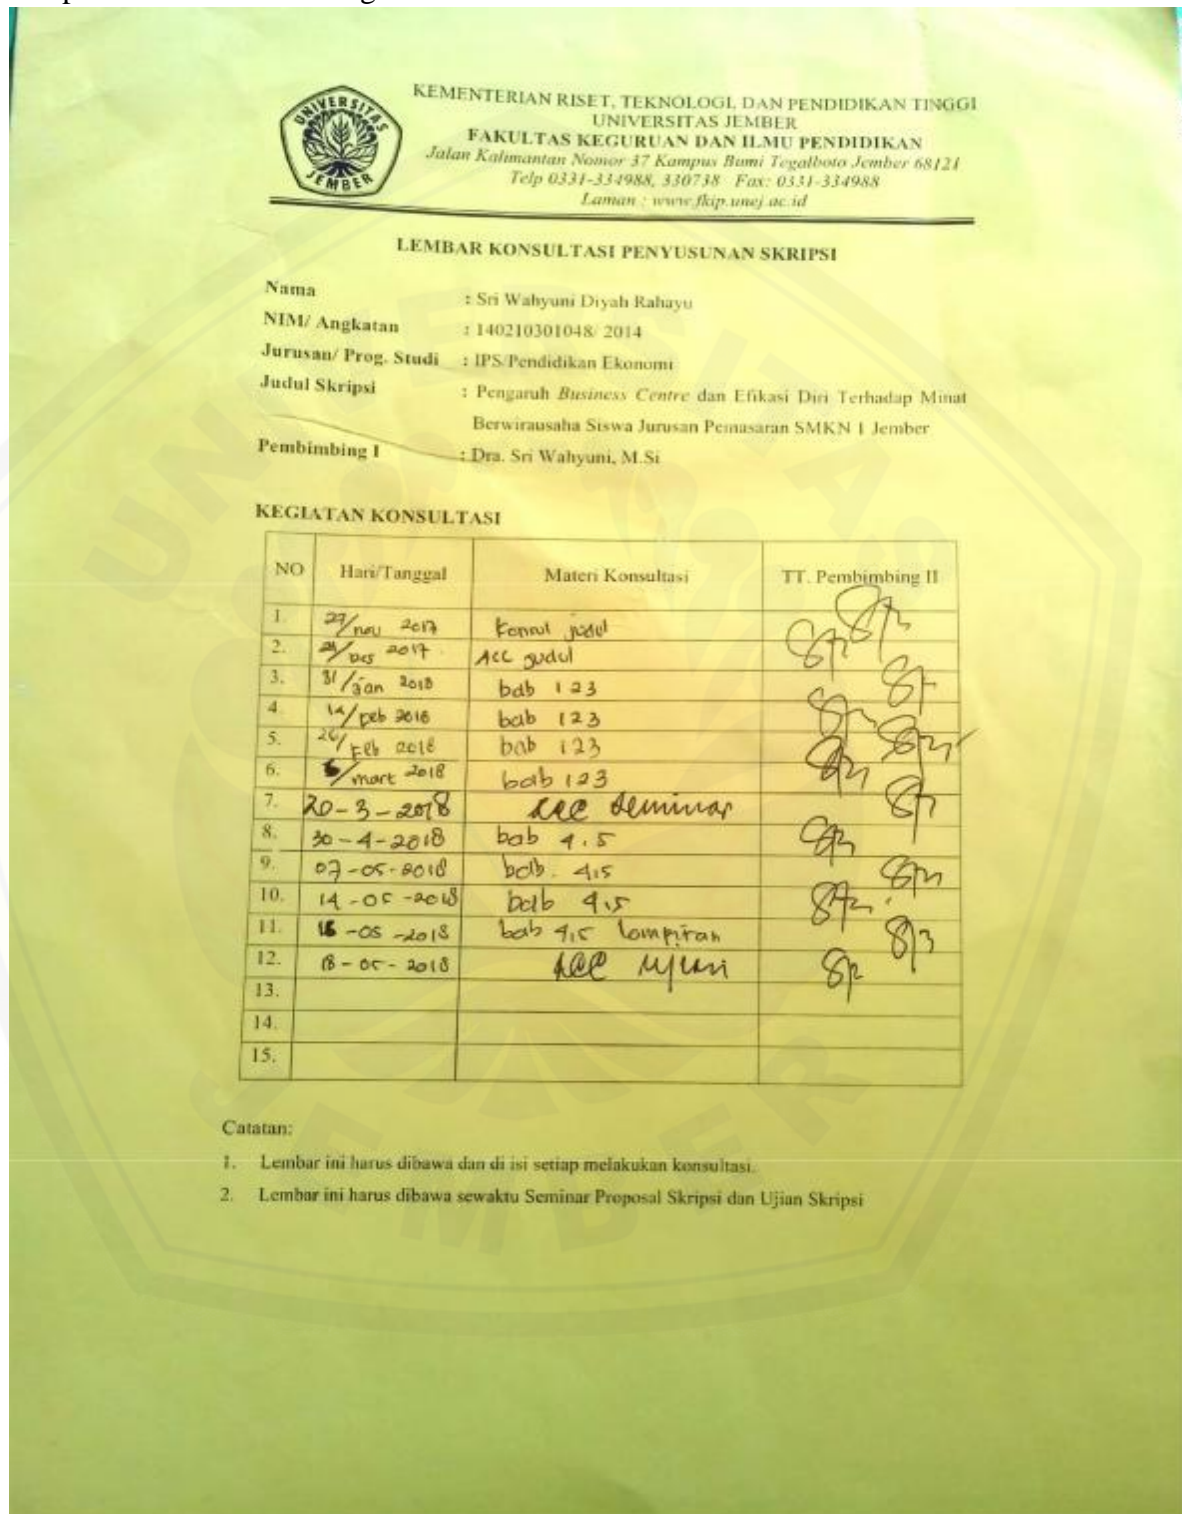 UNIVERSITAS
JEMBER
KEMENTERIAN RISET, TEKNOLOGI, DAN PENDIDIKAN TINGGI
UNIVERSITAS JEMBER
FAKULTAS KEGURUAN DAN ILMU PENDIDIKAN
Jalan Kalimantan Nomor 37 Kampus Bumi Tegalboto Jember 68121
Telp 0331-334988, 330738 Fax: 0331-334988
Laman : www.fkip.unej.ac.id
LEMBAR KONSULTASI PENYUSUNAN SKRIPSI
Nama : Sri Wahyuni Diyah Rahayu
NIM/ Angkatan : 140210301048/ 2014
Jurusan/ Prog. Studi : IPS/Pendidikan Ekonomi
Judul Skripsi : Pengaruh Business Centre dan Efikasi Diri Terhadap Minat
Berwirausaha Siswa Jurusan Pemasaran SMKN 1 Jember
Pembimbing I : Dra. Sri Wahyuni, M.Si
KEGIATAN KONSULTASI
NO Hari/Tanggal Materi Konsultasi TT. Pembimbing II
1. 27/nov 2017 judul
2. /Des 2017 ACC judul
3. 31/jan 2018 bab 1 2 3
4. 14/feb 2018 bab 1 2 3
5. 26/feb 2018 bab 1 2 3
6. /mart 2018 bab 1 2 3
7. 20-3-2018 ACC seminar
8. 30-4-2018 bab 4.5
9. 07-05-2018 bab. 4,5
10. 14-05-2018 bab 4,5
11. -05-2018 bab 4,5 lampiran
12. 18-05-2018 ACC ujian
13.
14.
15.
Catatan:
1. Lembar ini harus dibawa dan di isi setiap melakukan konsultasi.
2. Lembar ini harus dibawa sewaktu Seminar Proposal Skripsi dan Ujian Skripsi